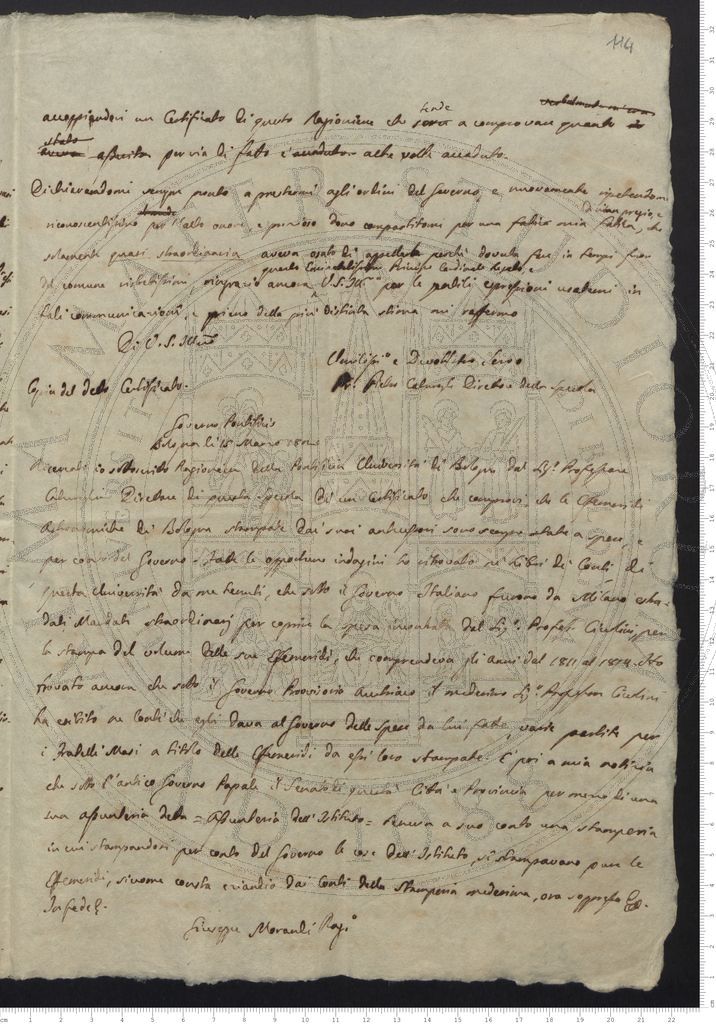 114
un Certificato di questo Ragioniere che tende a comprovare quanto
stato asserito per via di fatto è altre volte accaduto.
Dichiarandomi sempre pronto a prestarmi agli ordini del Governo, e nuovamente ripetendomi
di sian pregio, e
riconoscentissimo per l'alto onore, e prezioso dono compartitomi per una fatica mia, che
solamente quasi straordinaria aveva osato di perchè dovuta fare in tempi fuor
Principe Cardinale Legato, e
del comune ringrazio ancora V. S. Illma per le gentili espressioni usatemi in
tali comunicazioni, e pieno della più distinta stima mi raffermo
Di V. S. Illma
Umilissimo e Devotissimo Servo
Pietro Caturegli Direttore della Specola
Copia del detto Certificato.
Governo Pontificio
Bologna li 15 Marzo
Ricercato io sottoscritto Ragioniere della Pontificia Università di Bologna dal Sigr Professore
Caturegli Direttore di questa Specola di un Certificato, che comprovi, che le Effemeridi
Astronomiche di Bologna stampate dai suoi antecessori sono sempre state a spese, e
per conto del Governo. Fatte le opportune indagini ho ritrovato ne' Libri di Conti di
questa Università da me tenuti, che sotto il Governo Italiano furono da Milano
dati Mandati straordinarj per coprire la spesa incontrata dal Sigr Profess. Ciccolini per
la stampa del volume delle sue Effemeridi, che comprendeva gli anni dal 1811 al 1814. Ho
trovato ancora che sotto il Governo Provvisorio Austriaco il medesimo Sigr Professor Ciccolini
ha esibito ne Conti che egli dava al Governo delle spese da lui fatte, varie partite per
i Fratelli Masi a titolo delle Effemeridi da essi loro stampate. E poi a mia notizia
che sotto l'antico Governo Papale il Senato di questa Città e Provincia per mezzo di una
sua Assunteria detta = Assunteria dell'Istituto = teneva a suo conto una stamperia
in cui stampandosi per conto del Governo le cose dell'Istituto, si stampavano pure le
Effemeridi, siccome consta eziandio dai Conti della Stamperia medesima, ora soppressa
In fede
Giuseppe Morandi Ragio